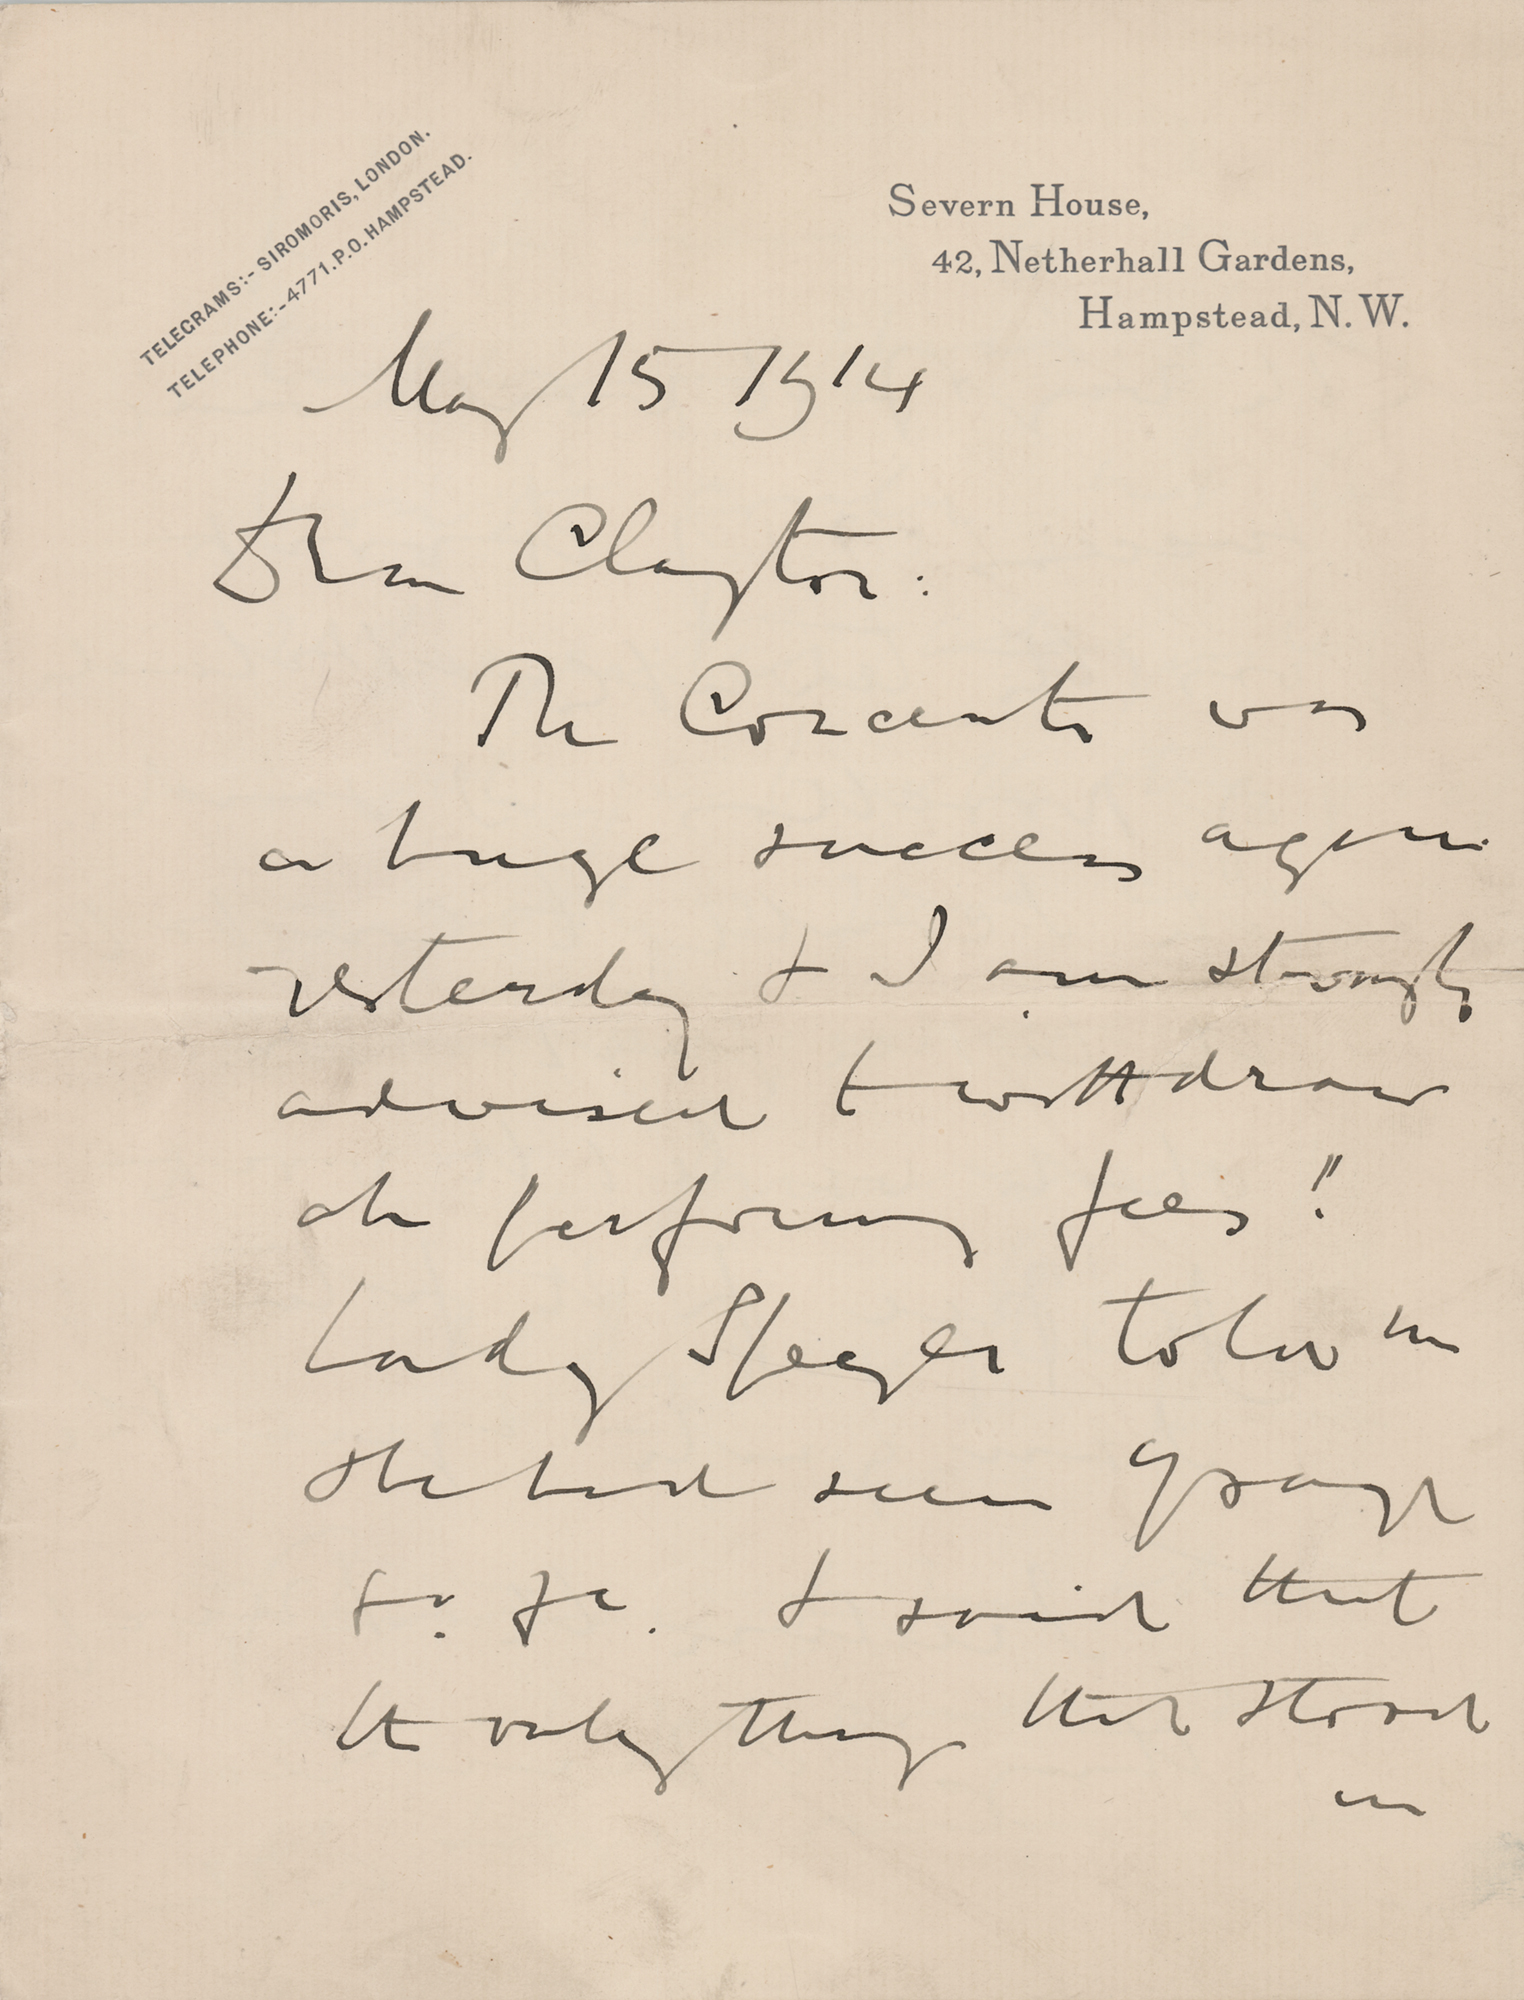 TELEGRAMS:- SIROMORIS, LONDON.
TELEPHONE:- 4771. P.O. HAMPSTEAD.
Severn House,
42, Netherhall Gardens,
Hampstead, N.W.
May 15 1914
Dear Clayton:
The Concerto was
a huge success again
yesterday & I am strongly
advised to withdraw
the performing fees!!
Lady Speyer told me
she had seen
& said that
the only thing that stood
in